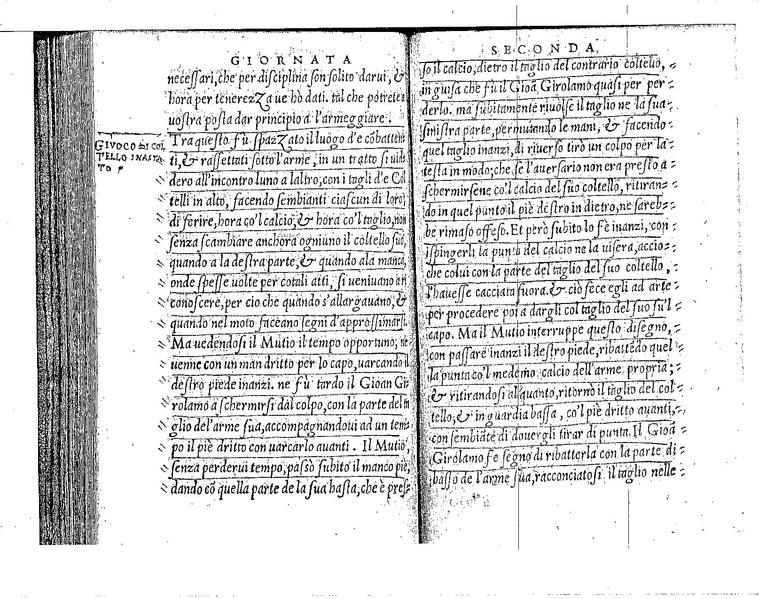 GIORNATA
necessari, che per disciplina son solito darui, &
hora per tenerezza ue hò dati. tal che potrete
uostra posta dar principio a l'armeggiare.
GIVOCO DI COL
TELLO INASTA
TO
Tra questo fù spazzato il luogo d'e cōbatten
ti, & rassettati sotto l'arme, in un tratto si uid
dero all'incontro luno a laltro, con i tagli d'e Col
telli in alto, facendo sembianti ciascun di loro,
di ferire, hora co'l calcio, & hora co'l taglio, non
senza scambiare anchora ogniuno il coltello suo,
quando a la destra parte, & quando ala manca,
onde spesse uolte per cotali atti, si ueniuano
conoscere, per cio che quando s'allargauano, &
quando nel moto faceano segni d'approssimarsi.
Ma uedendosi il Mutio il tempo opportuno, ne
uenne con un man dritto per lo capo, uarcando il
destro piede inanzi. ne fù tardo il Gioan Gi
rolamo a schermirsi dal colpo, con la parte del ta
glio del'arme sua, accompagnandoui ad un tem
po il piè dritto con uarcarlo auanti. Il Mutio
senza perderui tempo, passò subito il manco piè,
dando cō quella parte de la sua hasta, che è pres
SECONDA
so il calcio, dietro il taglio del contrario coltello,
in guisa che fù il Gioā Girolamo quasi per per
derlo. ma subitamente riuolse il taglio ne la sua
sinistra parte, permutando le mani, & facendo
quel taglio inanzi, di riuerso tirò un colpo per la
testa in modo; che se l'auersario non era presto a
schermirsene co'l calcio del suo coltello, ritiran
do in quel punto il piè destro in dietro, ne sareb
be rimaso offeso. Et però subito lo fè inanzi, con
ispingerli la punta del calcio ne la uisera, accio
che colui con la parte del taglio del suo coltello,
l'hauesse cacciata fuora. & ciò fece egli ad arte
per procedere poi a dargli col taglio del suo su'l
capo. Ma il Mutio interruppe questo disegno,
con passare inanzi il destro piede, ribattēdo quel
la punta co'l medemo calcio dell'arme propria;
& ritirandosi alquanto, ritornò il taglio del col
tello, & in guardia bassa, co'l piè dritto auanti,
con sembiāte di douergli tirar di punta. Il Gioā
Girolamo fe segno di ribatterla con la parte di
basso de l'arme sua, racconciatosi il taglio nelle